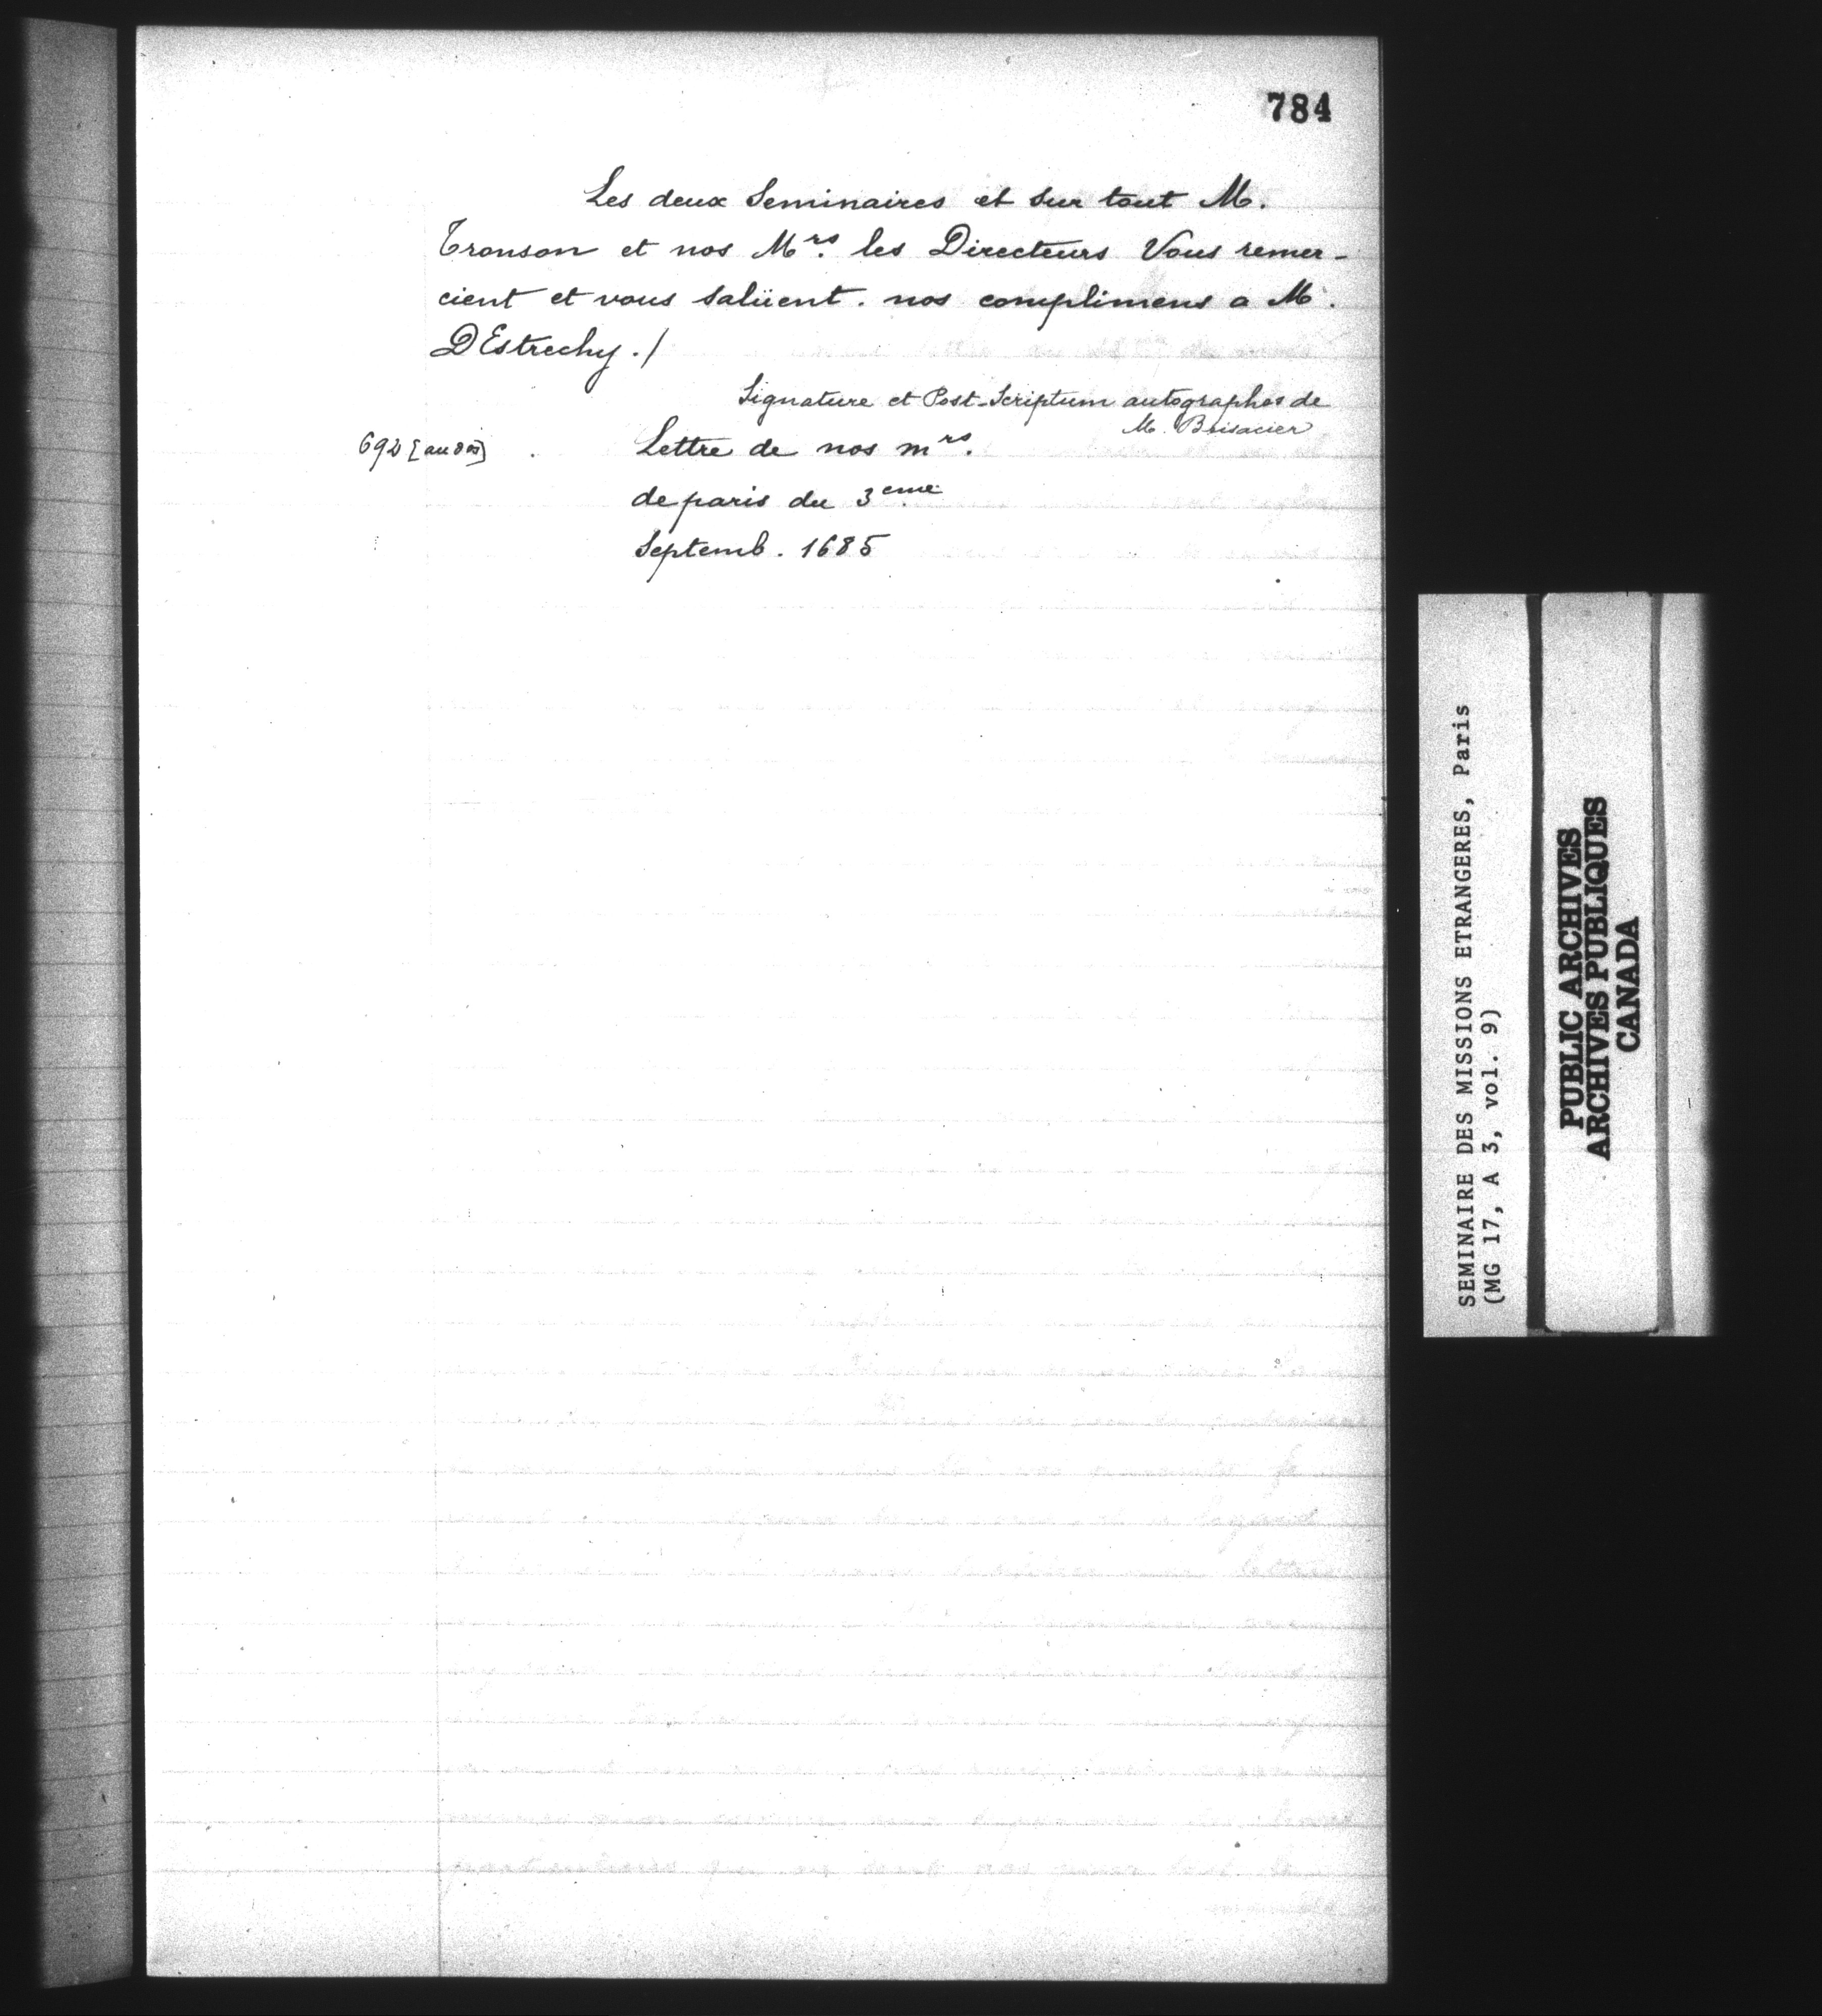 784
Les deux Seminaires et sur tout M.
Tronson et nos Mrs. les Directeurs Vous remer-
cient et vous salüent. nos complimens a M.
DEstrechy./
Signature et Post-Scriptum autographes de
M. Brisacier
692 [au dos]
Lettre de nos mrs.
de paris du 3eme.
Septemb. 1685
SEMINAIRE DES MISSIONS ETRANGERES, Paris
(MG 17, A 3, vol. 9)
PUBLIC ARCHIVES
ARCHIVES PUBLIQUES
CANADA